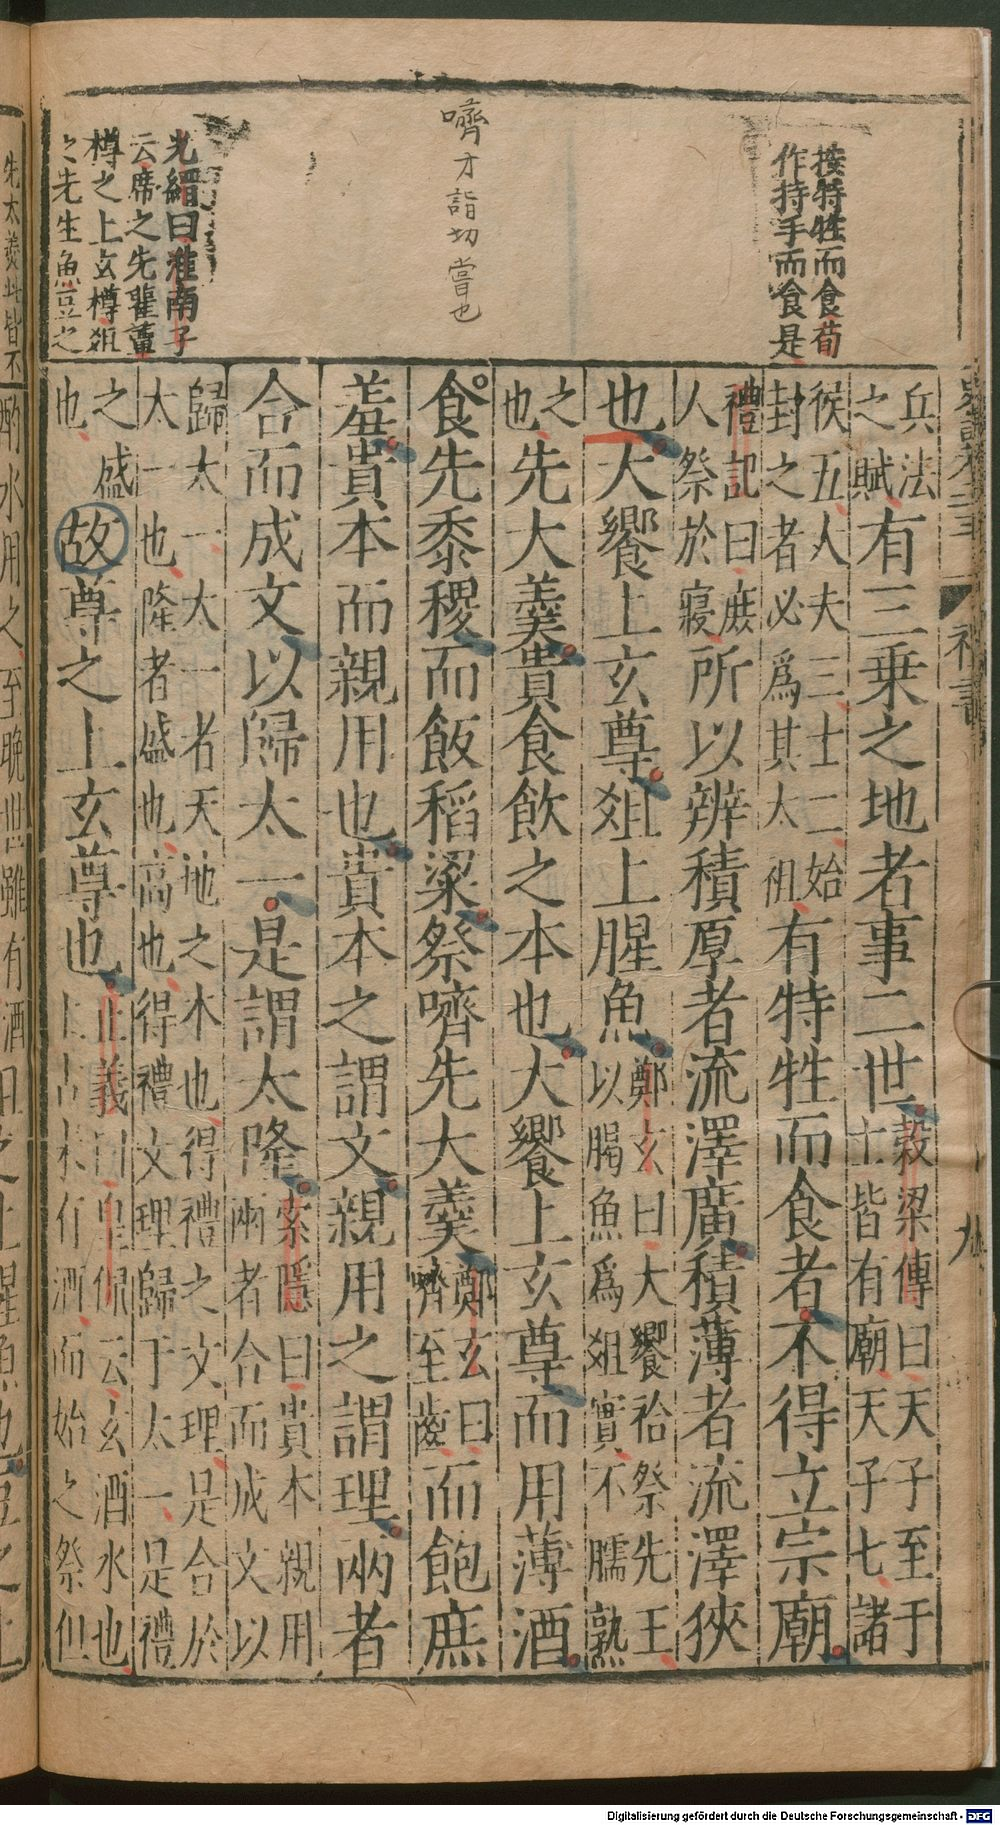 按特牲而食荀
作持手而食是
嚌才詣切嘗也
光縉曰淮南子
云席之先雚蕈
樽之上玄樽俎
之先生魚豆之
兵法
之賦有三乗之地者事二世
榖梁傳曰天子至于
士皆有廟天子七諸
侯五人人夫三士二始
封之者必爲其太祖有特牲而食者不得立宗廟
禮記曰庶
人祭於寢所以辨積厚者流澤廣積薄者流澤狹
也大饗上玄尊俎上腥魚
鄭玄曰大饗祫祭先王
以腸魚爲俎實不臑熟
之
也先大羹貴食飲之本也大饗上玄尊而用薄酒
食先黍稷而飯稻粱祭嚌先大羹
鄭玄曰
嚌至齒而飽庶
羞貴本而親用也貴本之謂文親用之謂理兩者
合而成文以歸太一是謂太隆
索隱曰貴本親用
兩者合而成文以
歸太一太一者天地之本也得禮之文理是合於
太一也隆者盛也高也得禮文理歸于太一是禮
之盛
也故尊之上玄尊也
正義曰皇侃云玄酒水也
上古未有酒而始之祭但
禮書
九
酌水用之至晩世雖有酒
Digitalisierung gefördert durch die Deutsche Forschungsgemeinschaft - DFG